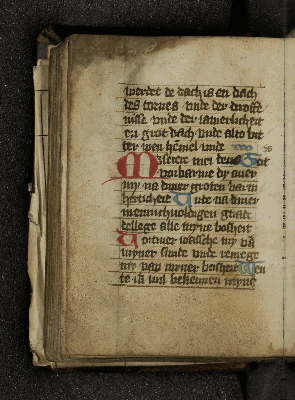 werdet de dach is en dach
des tornes vnde der droffe
nisse vnde der iamerlicheit
en grot dach vnde alto bit
ter wen hemel vnde
Miserere mei deus God
vorbarme dy ouer
my na diner groten barm
herticheit Vnde na diner
mennichuoldigen gnade
dellege alle myne bosheit
Vortmer wassche my va
myner sunde vnde reinege
my van myner bosheit Wen
te ik wil bekennen myne